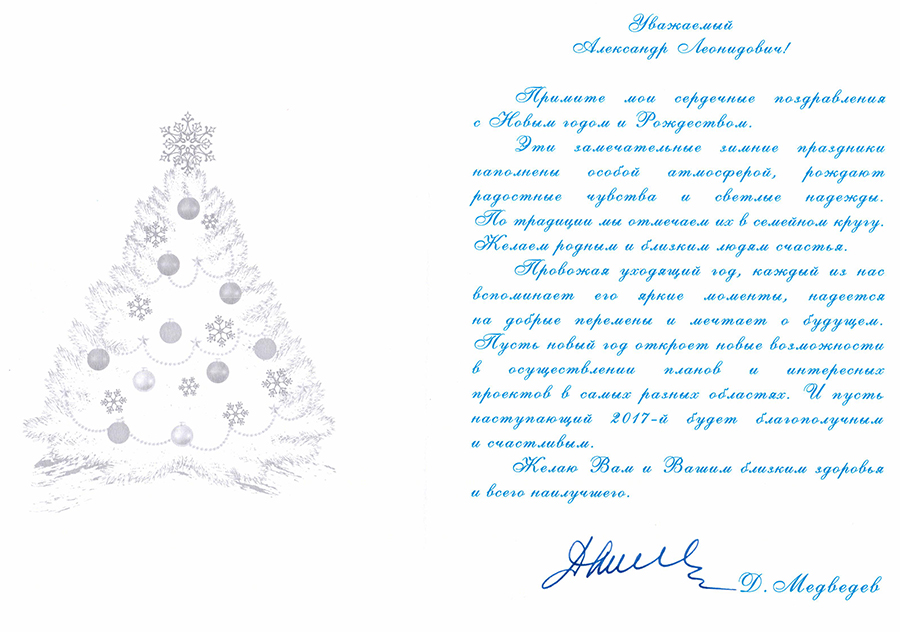 Уважаемый
Александр Леонидович!
Примите мои сердечные поздравления
с Новым годом и Рождеством.
Эти замечательные зимние праздники
наполнены особой атмосферой, рождают
радостные чувства и светлые надежды.
По традиции мы отмечаем их в семейном кругу.
Желаем родным и близким людям счастья.
Провожая уходящий год, каждый из нас
вспоминает его яркие моменты, надеется
на добрые перемены и мечтает о будущем.
Пусть новый год откроет новые возможности
в осуществлении планов и интересных
проектов в самых разных областях. И пусть
наступающий 2017-й будет благополучным
и счастливым.
Желаю Вам и Вашим близким здоровья
и всего наилучшего.
Д. Медведев